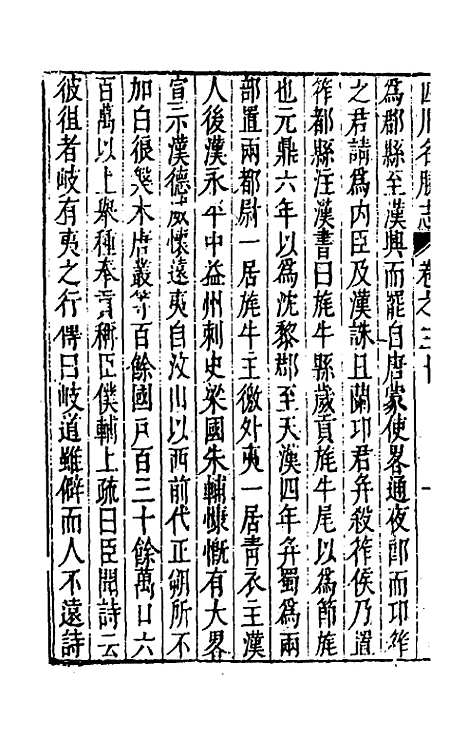 四川名勝志 卷之三十 一
為郡縣至漢興而罷自唐蒙使畧通夜郎而卭筰
之君請為内臣及漢誅且蘭卭君并殺筰侯乃置
筰都縣注漢書曰旄牛縣歲貢旄牛尾以為節旄
也元鼎六年以為沈黎郡至天漢四年并蜀為兩
部置兩都尉一居旄牛主徼外夷一居青衣主漢
人後漢永平中益州刺史梁國朱輔慷慨有大畧
宣示漢德威懷遠夷自汶山以西前代正朔所不
加白狼槃木唐叢等百餘國戸百三十餘萬口六
百萬以上舉種奉貢稱臣僕輔上疏曰臣聞詩云
彼徂者岐有夷之行傳曰岐道雖僻而人不遠詩